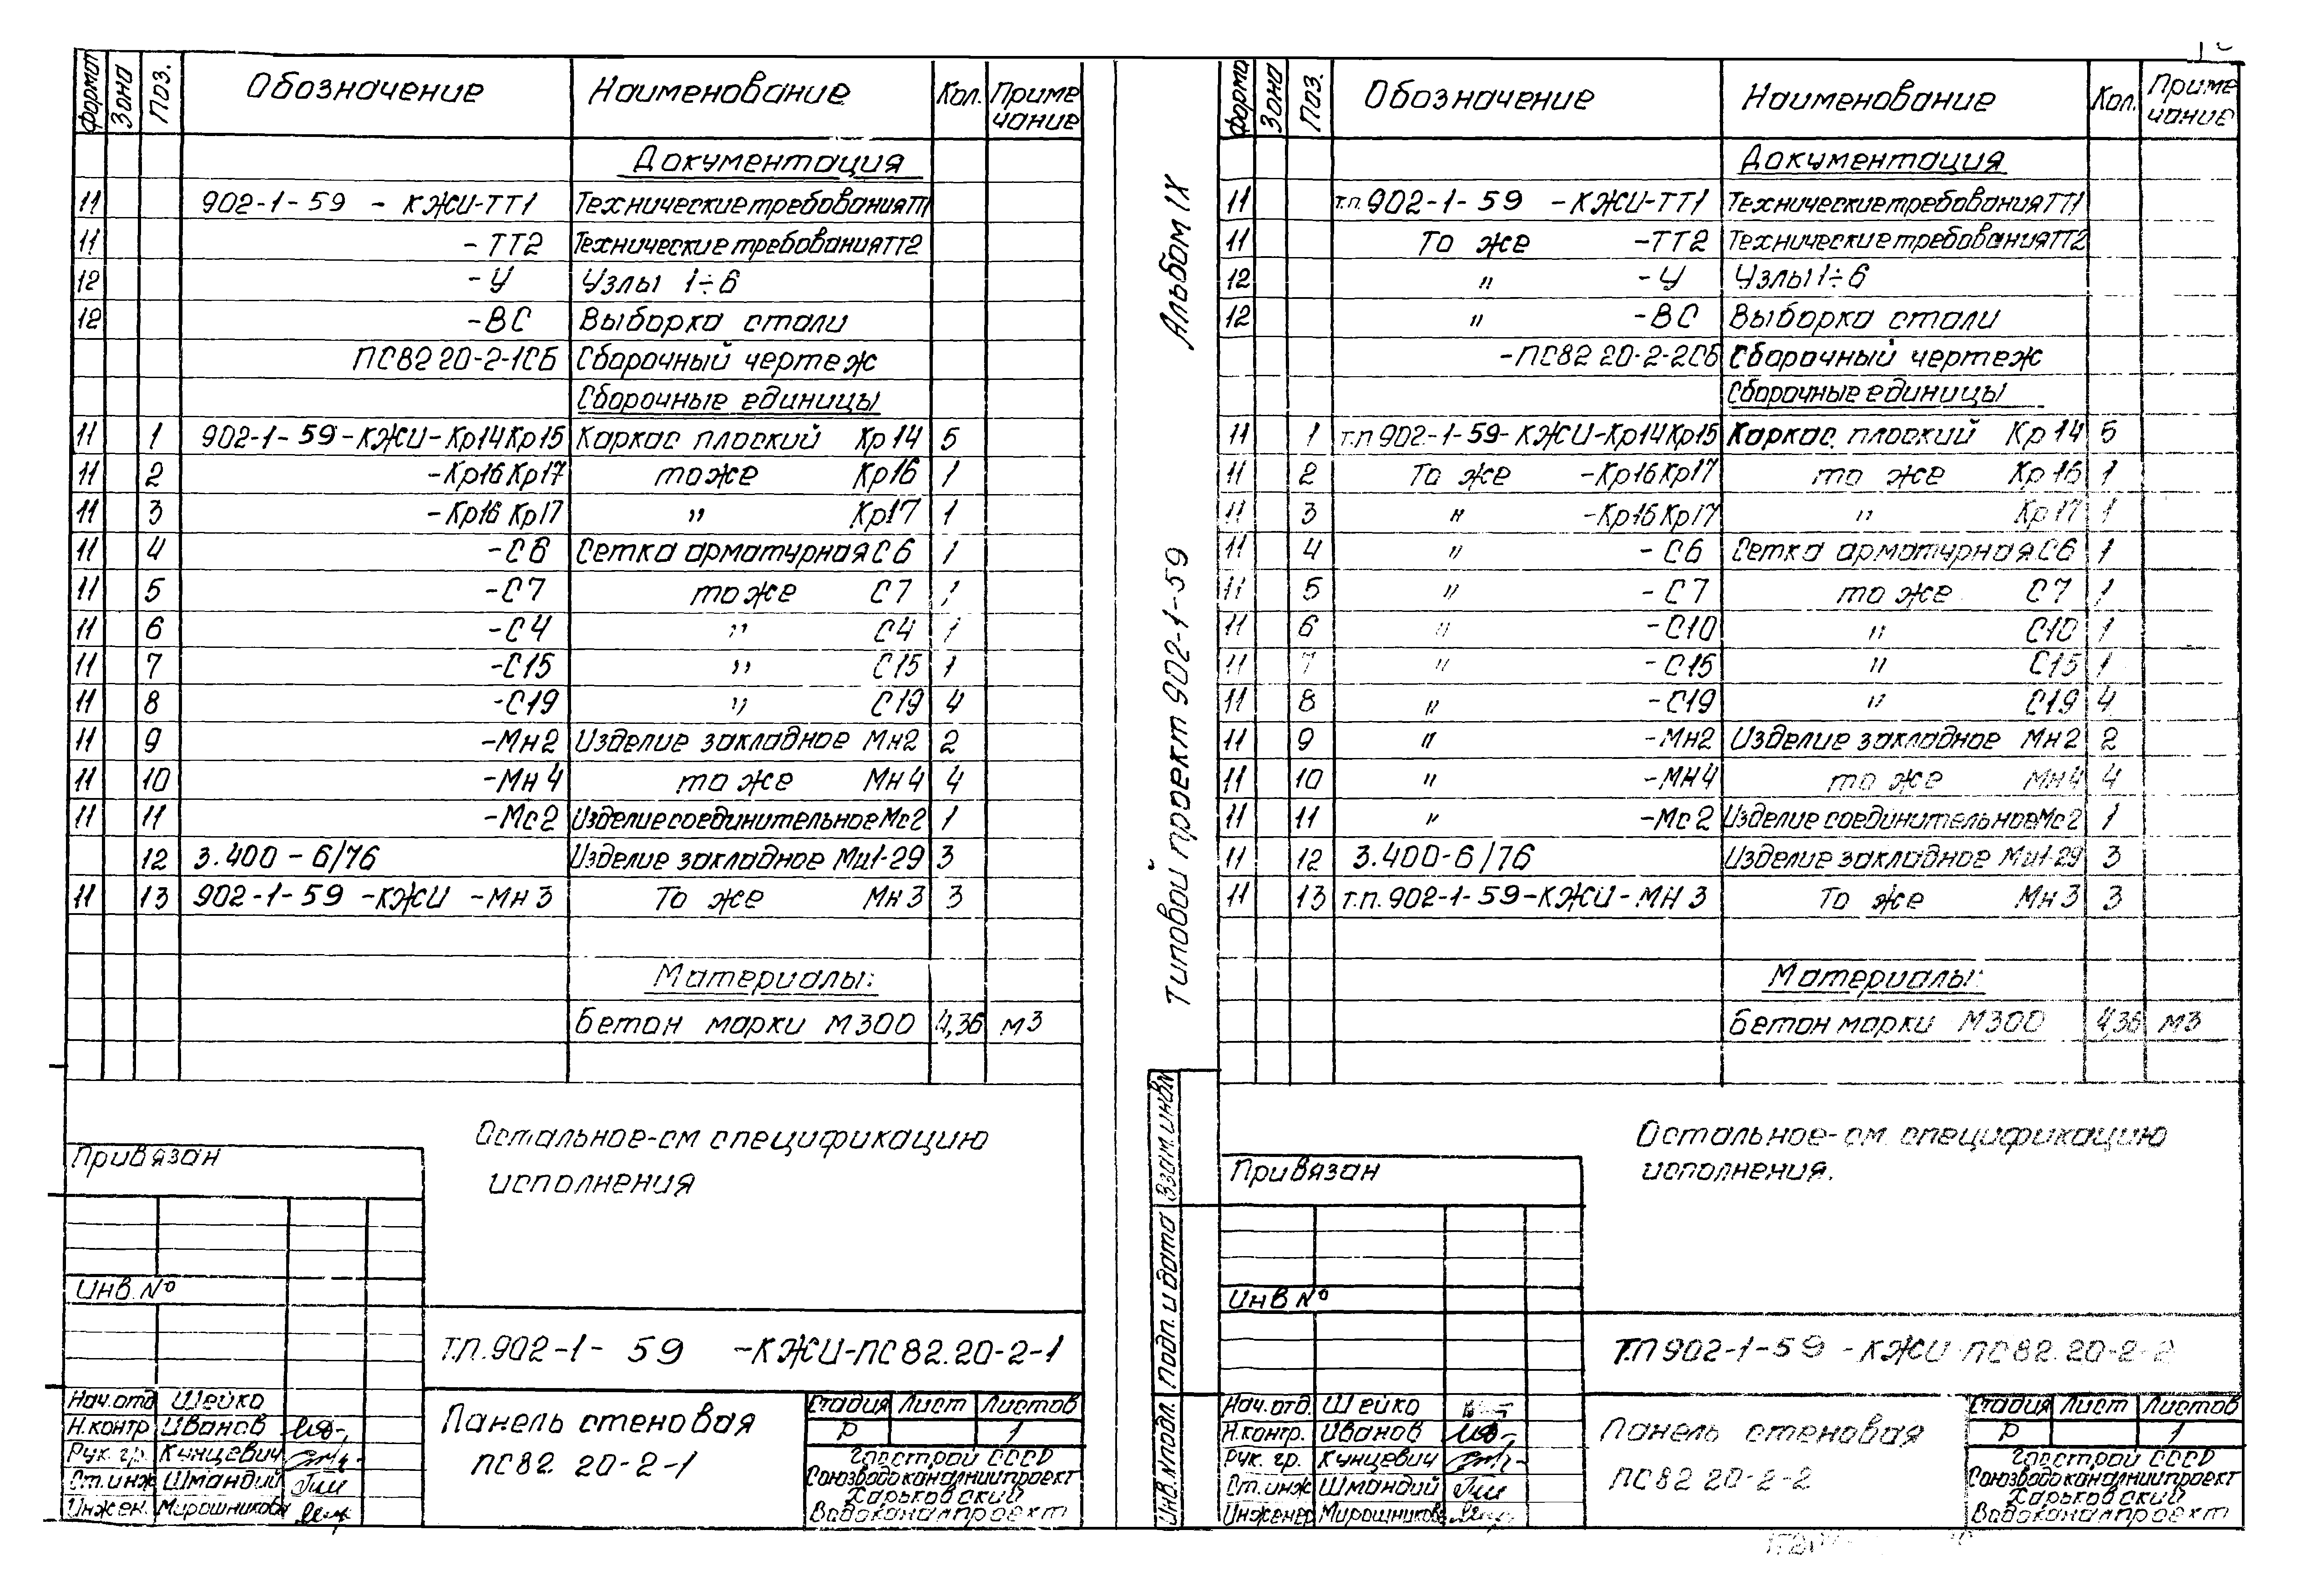 Формат Зона Поз. Обозначение Наименование Кол. Приме чание
Документация
11 902-1-59 -КЖИ-ТТ1 Технические требования ТТ1
11 -ТТ2 Технические требования ТТ2
12 -У Узлы 1÷6
12 -ВС Выборка стали
ПС82 20-2-1СБ Сборочный чертеж
Сборочные единицы
11 1 902-1-59-КЖИ-Кр14Кр15 Каркас плоский Кр14 5
11 2 -Кр16Кр17 то же Кр16 1
11 3 -Кр16 Кр17 " Кр17 1
11 4 -С6 Сетка арматурная С6 1
11 5 -С7 то же С7 1
11 6 -С4 " С4 1
11 7 -С15 " С15 1
11 8 -С19 " С19 4
11 9 -Мн2 Изделие закладное Мн2 2
11 10 -Мн4 то же Мн4 4
11 11 -Мс2 Изделие соединительное Мс2 1
12 3.400-6/76 Изделие закладное Ми1-29 3
11 13 902-1-59 -КЖИ -Мн3 То же Мн3 3
Материалы:
Бетон марки М300 4,36 м3
Остальное-см спецификацию
исполнения
Привязан
Инв.№
Т.П.902-1-59 -КЖИ-ПС82.20-2-1
Нач.отд Шейко
Н.контр Иванов
Рук. гр. Кунцевич
Ст.инж Шмандий
Инжен. Мирошникова
Панель стеновая
ПС82. 20-2-1
Стадия Лист Листов
Р 1
Госстрой СССР
Союзводоканалниипроект
Харьковский
Водоканалпроект
Альбом IX
Типовой проект 902-1-59
Взам.инв.№
Подп. и дата
Инв.№подл.
Формат Зона Поз. Обозначение Наименование Кол. Приме чание
Документация
11 т.п.902-1-59 -КЖИ-ТТ1 Технические требования ТТ1
11 То же -ТТ2 Технические требования ТТ2
12 " -У Узлы 1÷6
12 " -ВС Выборка стали
-ПС82 20-2-2СБ Сборочный чертеж
Сборочные единицы
11 1 т.п 902-1-59-КЖИ-Кр14Кр15 Каркас плоский Кр14 5
11 2 То же -Кр16Кр17 то же Кр16 1
11 3 " -Кр16Кр17 " Кр17 1
11 4 " -С6 Сетка арматурная С6 1
11 5 " -С7 то же С7 1
11 6 " -С10 " С10 1
11 7 " -С15 " С15 1
11 8 " -С19 " С19 4
11 9 " -Мн2 Изделие закладное Мн2 2
11 10 " -МН4 то же Мн4 4
11 11 " -Мс2 Изделие соединительное Мс2 1
11 12 3.400-6/76 Изделие закладное Ми1-29 3
11 13 т.п.902-1-59-КЖИ-МН3 То же Мн3 3
Материалы:
Бетон марки М300 4,36 м3
Остальное-см. спецификацию
исполнения.
Привязан
Инв №
Т.П 902-1-59 -КЖИ-ПС82.20-2-2
Нач.отд. Шейко
Н.контр. Иванов
Рук. гр. Кунцевич
Ст.инж Шмандий
Инженер Мирошникова
Панель стеновая
ПС82 20-2-2
Стадия Лист Листов
Р 1
Госстрой СССР
Союзводоканалниипроект
Харьковский
Водоканалпроект